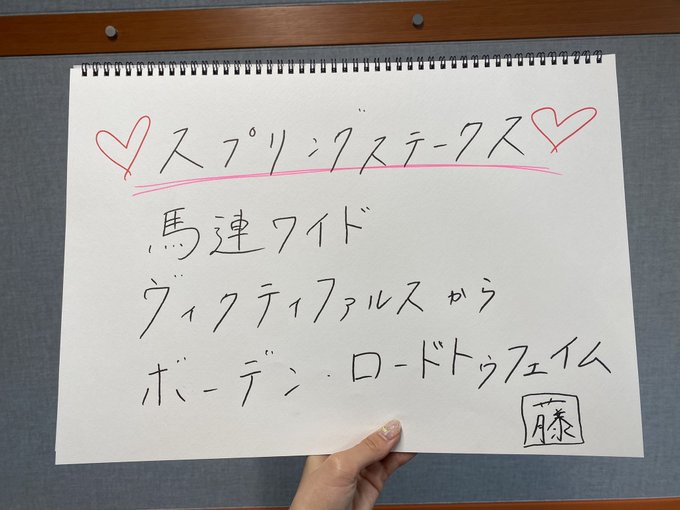 スプリングステークス
馬連ワイド
ヴィクティファルスから
ボーデン・ロードトゥフェイム
藤